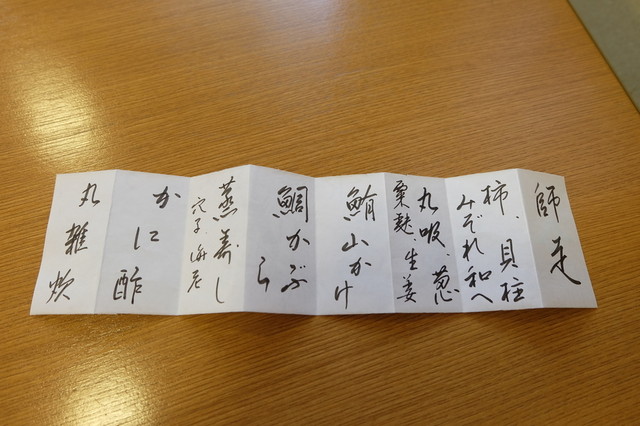 師走
柿、貝柱
みぞれ和へ
丸吸、葱
粟麩、生姜
鮪山かけ
鯛かぶ
ら
蒸寿し
穴子 海老
かに酢
丸雑炊